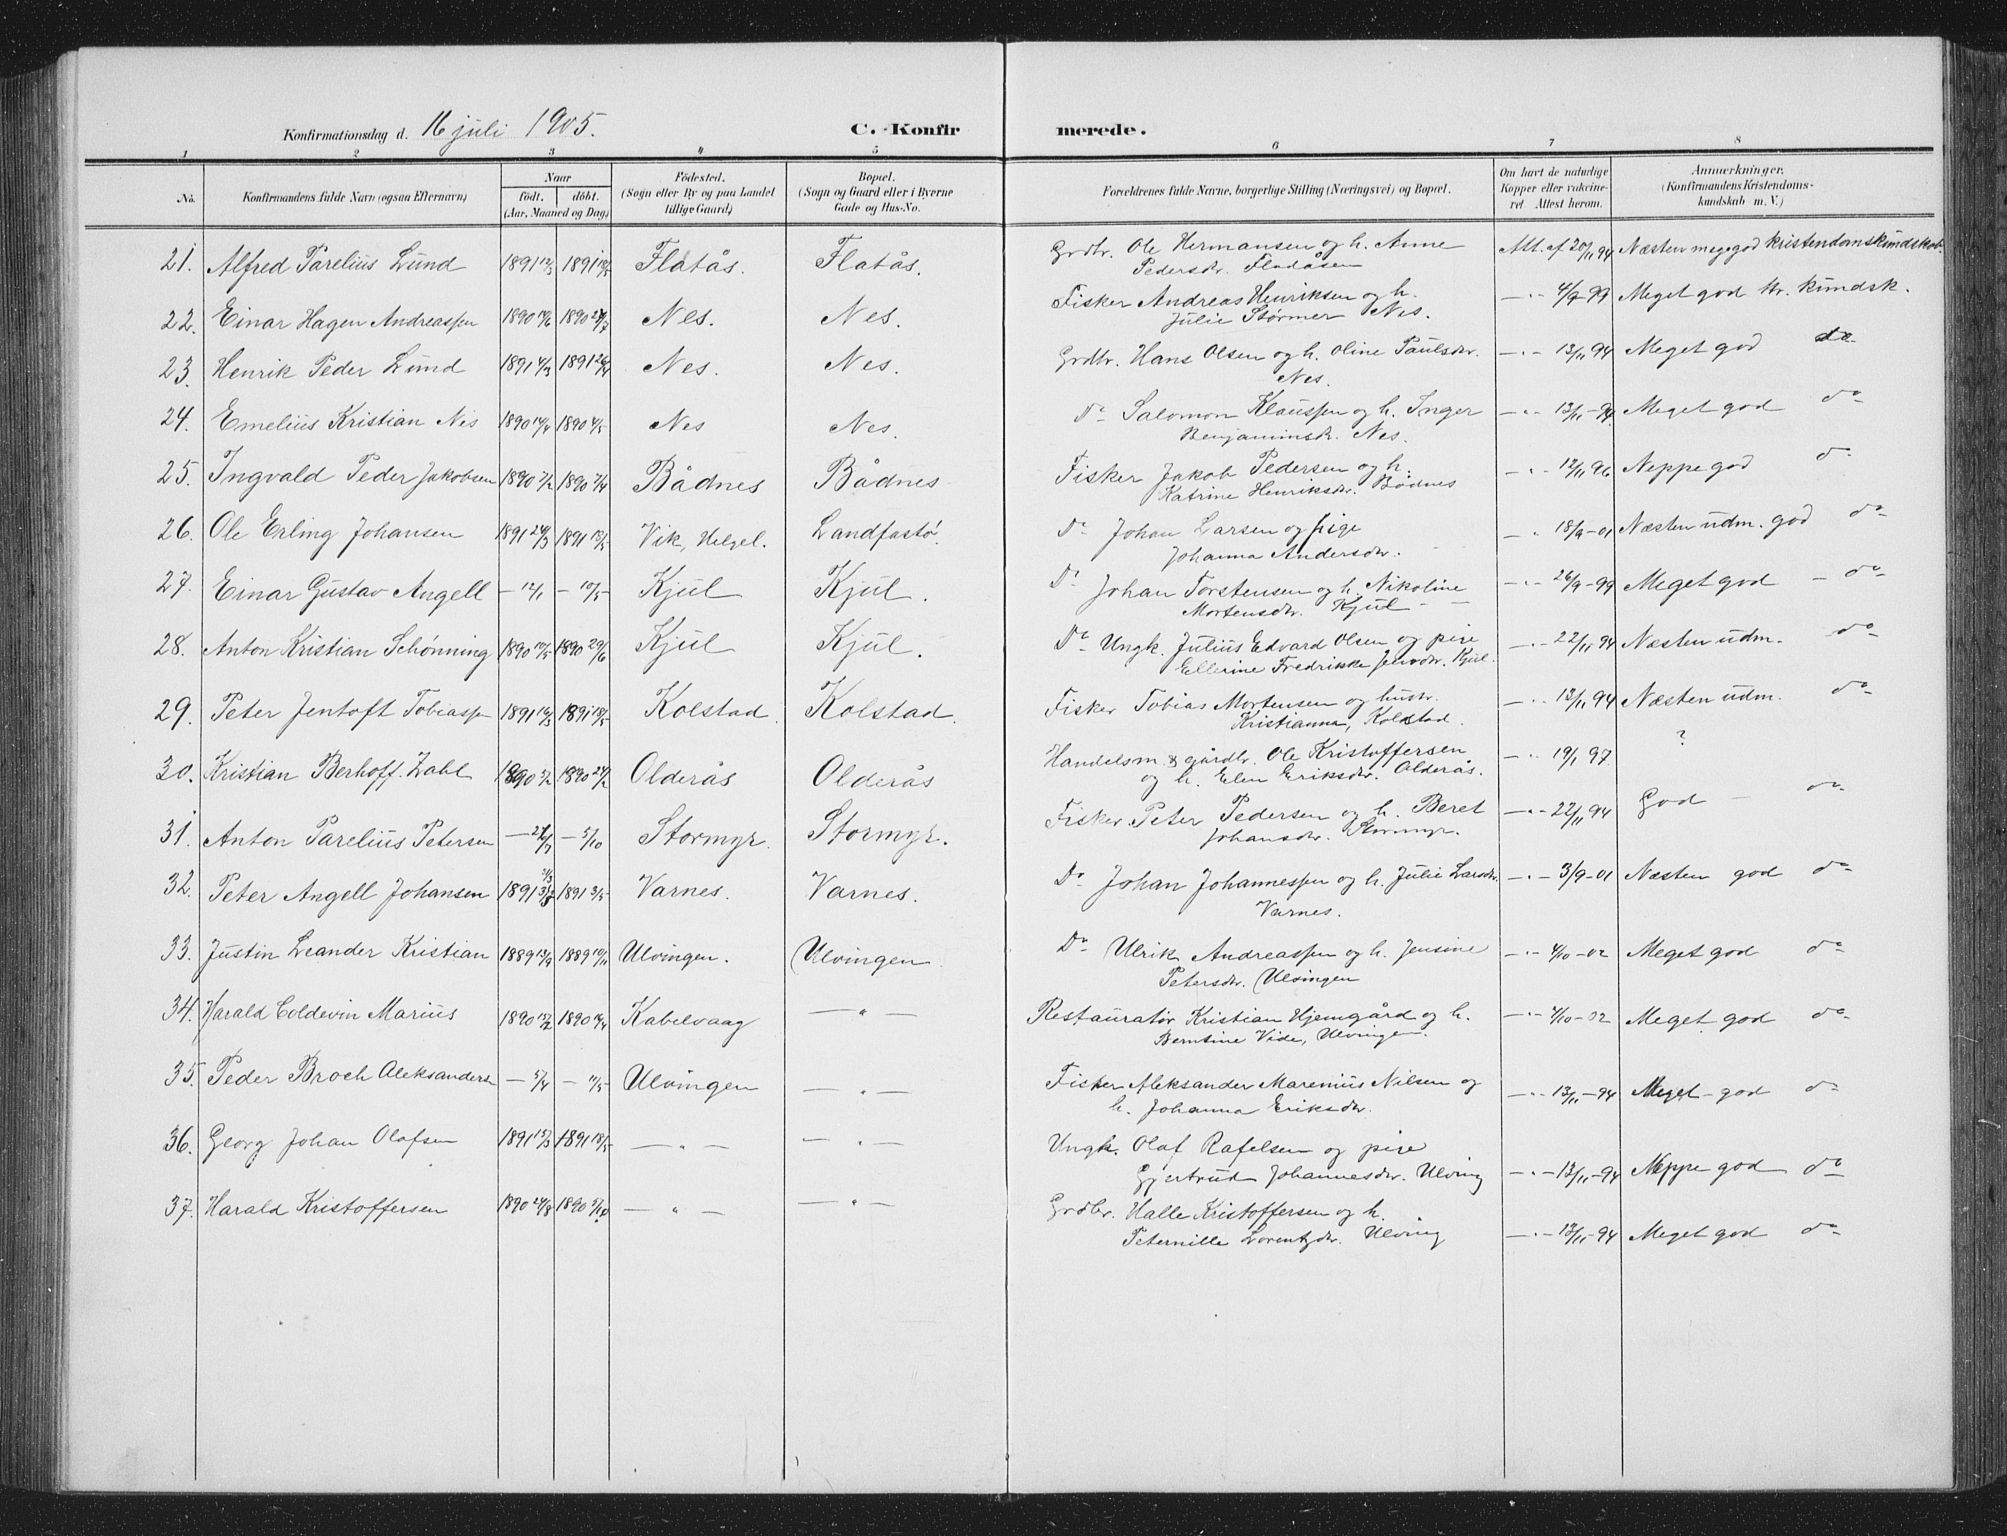 Konfirmationsdag d. 16 juli 1905. C. Konfirmerede.
1 2 3 4 5 6 7 8
No. Konfirmandens fulde Navn (ogsaa Efternavn) Naar födt. döbt. (Aar, Maaned og Dag) Födested. (Sogn eller By og paa Landet tillige Gaard) Bopæl. (Sogn og Gaard eller i Byerne Gade og Hus-No. Forældrenes fulde Navne, borgerlige Stilling (Næringsvei) og Bopæl. Om havt de naturlige Kopper eller vakcineret Attest herom. Anmærkninger. (Konfirmandens Kristendomskundskab m. V.)
21. Alfred Parelius Lund 1891 1891 Flatås. Flatås. Grdbr. Ole Hermansen og h. Anne Att. af 20/11 94 Næsten meget god kristendomskundskab.
Pedersdr. Fladåsen
22. Einar Hagen Andreassen 1890 1890 Nes. Nes. Fisker Andreas Henriksen og h. —"— 4/9-99 Meget god kr. kundsk.
Julie Størmer Nes.
23. Henrik Peder Lund 1891 4/3 1891 Nes. Nes. Grdbr. Hans Olsen og h. Oline Paulsdr. —"— 13/11 94 Meget god do
Nes.
24. Emelius Kristian Nes 1890 14/4 1890 4/5 Nes Nes. Do Salomon Klaussen og h. Inger —"— 13/11-94 Meget god do
Benjaminsdr. Nes.
25. Ingvald Peder Jakobsen 1890 1890 Bådnes Bådnes Fisker Jakob Pedersen og h. —"— 12/11 96 Neppe god do
Katrine Henriksdr. Bådnes
26. Ole Erling Johansen 1891 24/3 1891 18/5 Vik, Helgel. Landfastø. Do Johan Larsen og pige — " 18/9-01 Næsten udm. god do
Johanna Andersdr.
27. Einar Gustav Angell — 12/1 — 10/5 Kjul Kjul. Do Johan Torstensen og h. Nikoline —"— 26/9-99 Meget god — do
Mortensdr. Kjul
28. Anton Kristian Schønning 1890 10/5 1890 29/6 Kjul Kjul. Do Ungk. Julius Edvard Olsen og pige —"— 22/11 94 Næsten udm. do
Ellerine Fredrikke Jensdr. Kjul.
29. Peter Jentoft Tobiassen 1891 16/3 1891 18/5 Kolstad. Kolstad. Fisker Tobias Mortensen og hustr. —"— 13/11 94 Næsten udm. do
Kristianna, Kolstad.
30. Kristian Berhoff. Zahl 1890 1890 Olderås Olderås Handelsm. & gårdbr. Ole Kristoffersen —"— 19/1 97 ?
og h. Elen Eriksdr. Olderås.
31. Anton Parelius Petersen — — 5/10 Stormyr. Stormyr. Fisker Peter Pedersen og h. Beret —"— 22/11 94 God — do
Johansdr. Stormyr.
32. Peter Angell Johansen 1891 1891 3/5 Varnes. Varnes. Do Johan Johannessen og h. Julie Larsdr. —"— 3/9-01 Næsten god do
Varnes.
33. Justin Leander Kristian 1889 13/9 1889 10/11 Ulvingen. Ulvingen Do Ulrik Andreassen og h. Jensine —"— 4/10-02 Meget god do
Petersdr. Ulvingen
34. Harald Coldevin Marius 1890 1890 Kabelvaag — " — Restauratør Kristian Hjemgård og h. —"— 4/10-02 Meget god do
Berntine Vide, Ulvingen.
35. Peder Broch Aleksanders — 5/4 — 11/5 Ulvingen — " — Fisker Aleksander Marenius Nilsen og —"— 13/11-94 Meget god do
h. Johanna Eriksdr.
36. Georg Johan Olafsen 1891 1891 18/5 — " — — " — Ungk. Olaf Rafelsen og pige
Gjertrud Johannesdr. Ulving —"— 13/11-94 Neppe god do
37. Harald Kristoffersen 1890 24/8 1890 5/10 — " — — " — Grdbr. Halle Kristoffersen og h.
Peternille Lorentzdr. Ulving —"— 13/11-94 Meget god do